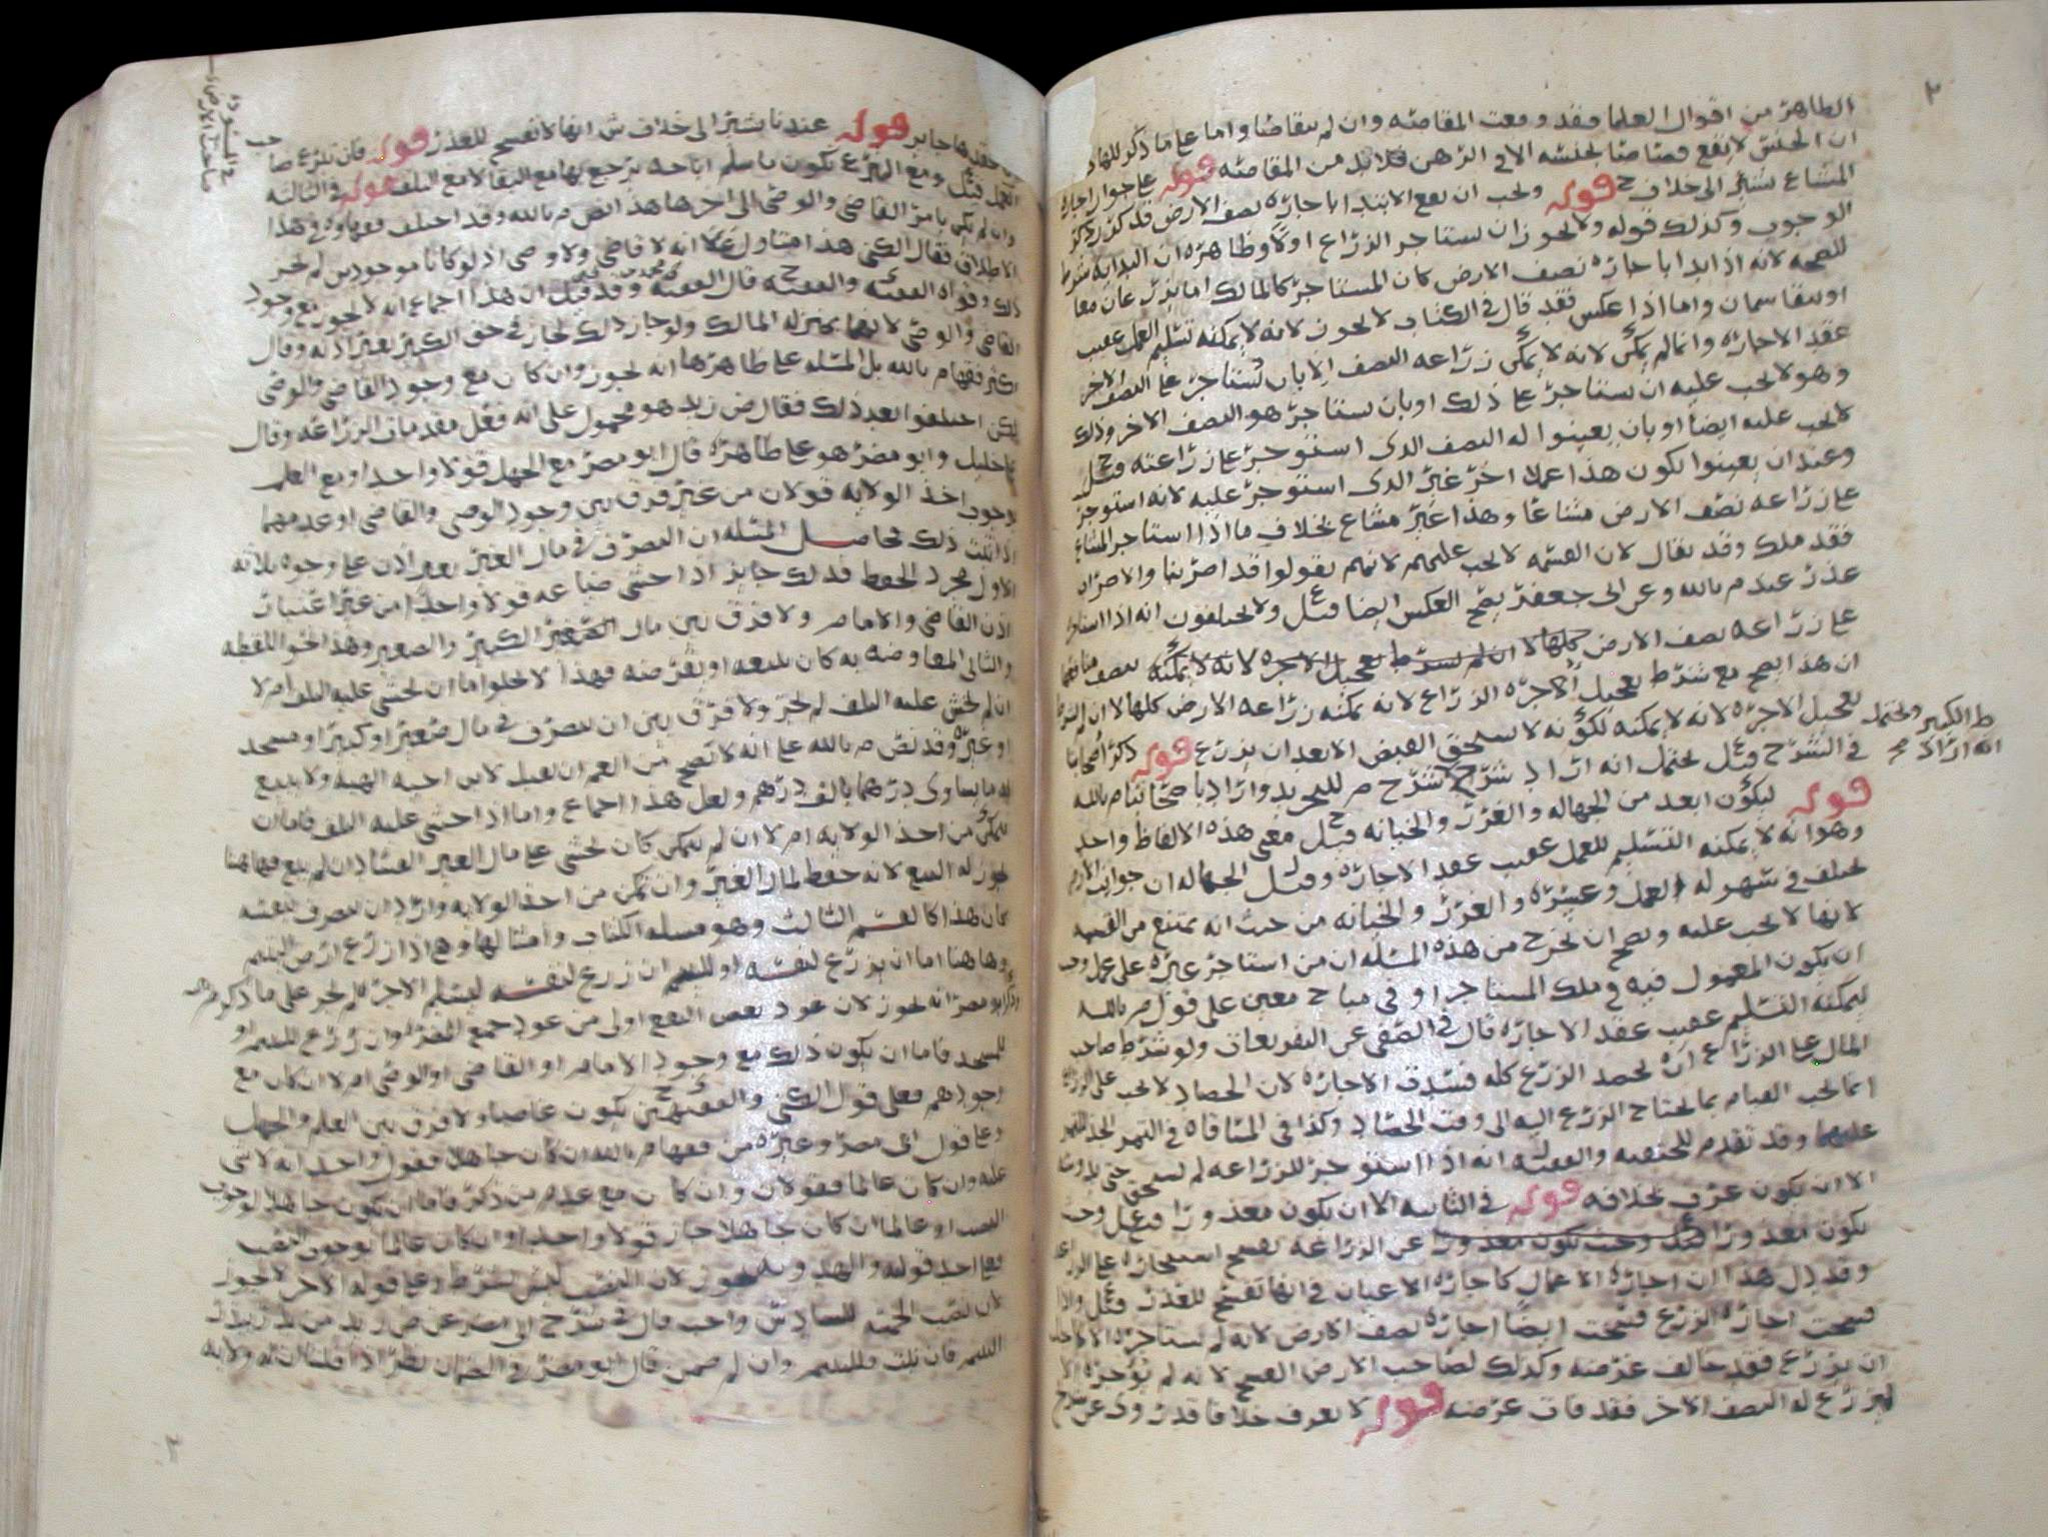 الظاهر من اقوال العلما فقد وقعت المقاصه وان لم يتقاصا واما على ما ذكر
ان الجنس لا يقع قصاصا بجنسه الا في الرهن فلا بد من المقاصه قوله على جواز اجارة
المشاع يشير الى خلاف ح قوله ويجب ان يقع الابتدا باجارة نصف الارض قد كرر ذكر
الوجوب وكذلك قوله ولا يجوز ان يستاجر الزراع اولا وظاهره ان البداية شرط
للصحه لانه اذا ابدا باجارة نصف الارض كان المستاجر كالمالك اما يزرعان معا
او يتقاسمان واما اذا عكس فقد قال في الكتاب لا يجوز لانه لا يمكنه تسليم العمل عقيب
عقد الاجارة وانما لم يمكن لانه لا يمكن زراعه النصف الا بان يستاجر على النصف الاخر
وهو لا يجب عليه ان يستاجر على ذلك او بان يستاجر هو النصف الاخر وذلك
لا يجب عليه ايضا او بان يعينوا له النصف الذي استوجر على زراعته قيل
وعند ان يعينوا يكون هذا عملا اخر غير الذي استوجر عليه لانه استوجر
على زراعه نصف الارض مشاعا وهذا غير مشاع بخلاف ما اذا استاجر المشاع
فقد ملك وقد يقال لان القسمه لا تجب عليهم لانهم يقولوا قد اضر بنا والاضرار
عذر عند م بالله وعن ابي جعفر يصح العكس ايضا قيل ولا يختلفون انه اذا استاجره
على زراعه نصف الارض كلها لا ان لم يشرط تعجيل الاجره لانه لا يمكنه
ان هذا يصح مع شرط تعجيل الاجره الزراع لانه يمكنه زراعه الارض كلها لا ان لم يشرط
تعجيل الاجره لانه لا يمكنه لكونه لا يستحق القبض الا بعد ان يزرع قوله ذكر اصحابنا
في الشرح قيل يحتمل انه اراد شرح شرح م للتجريد واراد باصحابنا م بالله
ط الكبير ويحتمل
انه اراد
قوله ليكون ابعد من الجهاله والغرر والخيانه قيل معنى هذه الالفاظ واحد
وهو انه لا يمكنه التسليم للعمل عقيب عقد الاجاره وقيل الجهاله ان جوانب الارض
تختلف في سهوله العمل وعسره والغرر والخيانه من حيث انه يمتنع من القسمه
لانها لا تجب عليه ويصح ان يخرج من هذه المسله ان من استاجر غيره على عمل وجب
ان يكون المعمول فيه في ملك المستاجر او في مباح معين على قول م بالله
ليمكنه التسليم عقيب عقد الاجاره قال في الصفي عن التفريعات ولو شرط صاحب
المال على الزراع ان يحصد الزرع كله فسدت الاجاره لان الحصاد لا يجب على الزراع
انما يجب القيام بما يحتاج الزرع اليه الى وقت الحصاد وكذا في المساقاه في الثمر الجد
عليهما وقد تقدم للحنفيه والفقيه انه اذا استوجر للزراعه لم يستحق حتى
الا ان يكون عرف بخلافه قوله في الثانيه الا ان يكون معذورا قيل وحيث
يكون معذورا قيل وحيث يكون معذورا عن الزراعه تفسخ استيجاره على الزراعه
وقد دل هذا ان اجاره الاعمال كاجاره الاعيان في انها تفسخ للعذر قيل واذا
فسخت اجاره الزرع فسخت ايضا اجاره نصف الارض لانه لم يستاجره الا لاجل
ان يزرع فقد خالف غرضه وكذلك لصاحب الارض الفسخ لانه لم يؤجره الا
ليزرع له النصف الاخر فقد فات غرضه قوله لا يعرف خلافا قد روى عن شرح
حقدها جاير قوله عندنا يشير الى خلاف ش انها لا تفسخ للعذر قوله فان تبرع صا
حب
البذر
صاحب الارض
العمل قيل ومع التبرع يكون باسلم اباحه يرجع بها مع البقا لا مع التلف قوله في الثالثه
وان لم يكن بامر القاضي والوصي الى اخرها هذا نص م بالله وقد اختلف فقهاوه في هذا
الاطلاق فقال الكني هذا متاول على انه لا قاضي ولا وصي اذ لو كانا موجودين لم يجز
ذلك وقواه الفقيه ى والفقيه ح قال الفقيه محمد بن يحيى وقد قيل ان هذا اجماع انه لا يجوز مع وجود
القاضي والوصي لانهما بمنزله المالك ولو جاز ذلك لجاز في حق الكبير بغير اذنه وقال
اكثر فقها م بالله بل المسله على ظاهرها انه يجوز وان كان مع وجود القاضي والوصي
لكن اختلفوا بعد ذلك فقال ض زيد هو محمول على انه فعل مقدمات الزراعه وقال
على خليل وابو مضر هو على ظاهره قال ابو مضر مع الجهل قولا واحدا ومع العلم
بوجوب اخذ الولايه قولان من غير فرق بين وجود الوصي والقاضي او عدمهما
اذا ثبت ذلك فحاصل المسله ان التصرف في مال الغير بغير اذن على وجوه ثلاثه
الاول مجرد الحفظ فذلك جايز اذا خشي ضياعه قولا واحدا من غير اعتبار
اذن القاضي والامام ولا فرق بين مال الصغير الكبير والصغير وهذا نحو اللقطه
والثاني المعاوضه به كان يبيعه او يقرضه فهذا لا يخلوا اما ان يخشى عليه التلف ام لا
ان لم يخش عليه التلف لم يجز ولا فرق بين ان يتصرف في مال صغير او كبير او مسجد
او غيره وقد نص م بالله على انه لا يصح من العم ان يقبل لابن اخيه الهبه ولا يبيع
له ما يساوي درهما بالف درهم ولعل هذا اجماع واما اذا خشي عليه التلف فاما ان
يتمكن من اخذ الولايه ام لا ان لم يتمكن كان يخشى على مال الغير الفساد ان لم يبع فهاهنا
يجوز له البيع لانه حفظ لمال الغير وان تمكن من اخذ الولايه واراد ان يتصرف بنفسه
كان هذا كالقسم الثالث وهو مسله الكتاب وامثالها وهي اذا زرع ارض اليتيم
وهاهنا اما ان يزرع لنفسه او لليتيم ان زرع لنفسه ليسلم الاجر لم يجز على ما ذكره م بالله
وذكر ابو مضر انه يجوز لان عود بعض النفع اولى من عود جميع الضرر وان زرع لليتيم او
للمسجد فاما ان يكون ذلك مع وجود الامام او القاضي او الوصي ام لا ان كان مع
وجودهم فعلى قول الكني والفقيهين يكون غاصبا ولا فرق بين العلم والجهل
وعلى قول ابي مضر وغيره من فقها م بالله ان كان جاهلا فقول واحد انه لا شي
عليه وان كان عالما فقولان وان كان مع عدم من ذكر فاما ان يكون جاهلا لوجوب
النصب او عالما ان كان جاهلا جاز قولا واحدا وان كان عالما بوجوب النصب
فعلى احد قوليه والهدويه يجوز لان النصب ليس بشرط وعلى قوله الاخر لا يجوز
لان نصب الخمسه للسادس واجب قال في شرح ابي مضر عن ض زيد من بذر بذر
اليتيم فان نبت فلليتيم وان لم ضمن قال ابو مضر في الضمان نظر اذا قلنا ان له ولايه